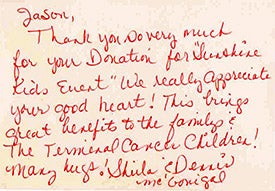 Jason,
Thank you so very much
for your Donation for "Sunshine
Kids Event" We really Appreciate
your good heart! This brings
great benefit to the familys &
The Terminal Cancer Children!
many hugs! Shiila & Dennis
McGonigal